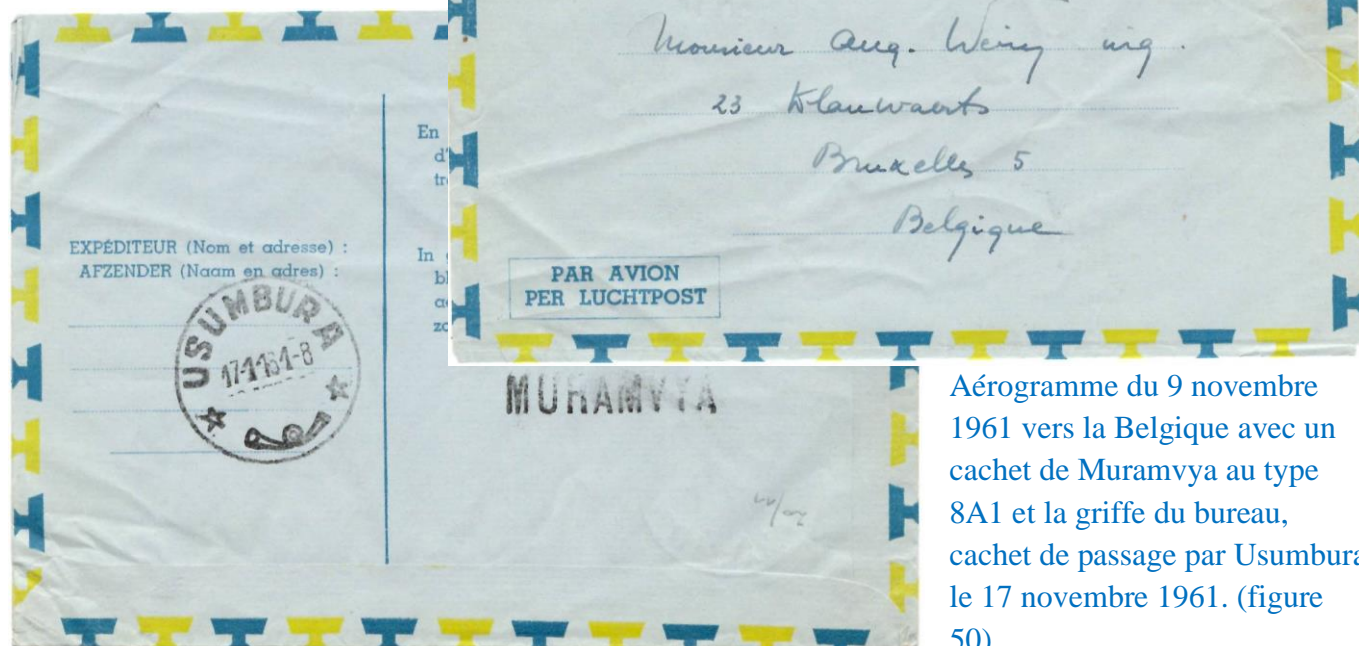 Monsieur Aug. Weiry ing.
23 Klauwaerts
Bruxelles 5
Belgique
PAR AVION
PER LUCHTPOST
En
d'
tr
EXPÉDITEUR (Nom et adresse) :
AFZENDER (Naam en adres) :
In
bl
zo
USUMBURA
17-1161-8
MURAMVYA
Aérogramme du 9 novembre
1961 vers la Belgique avec un
cachet de Muramvya au type
8A1 et la griffe du bureau,
cachet de passage par Usumbura
le 17 novembre 1961. (figure
50)